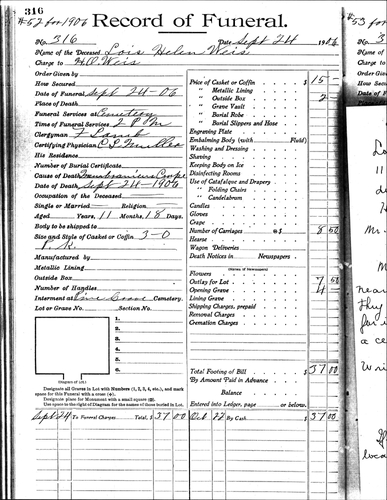 316
#52 for 1906
Record of Funeral.
No. 316 Date Sept 24 1906
Name of the Deceased Lois Helen Weis
Charge to H O Weis
Order Given by
How Secured
Date of Funeral Sept 24-06
Place of Death
Funeral Services at Cemetery
Time of Funeral Services 2 P.M.
Clergyman F Lamb
Certifying Physician
His Residence
Number of Burial Certificate
Cause of Death Membranious Croup
Date of Death Sept 24-1906
Occupation of the Deceased
Single or Married Religion
Aged Years, 11 Months, 18 Days.
Body to be shipped to
Size and Style of Casket or Coffin 3-0
P. K.
Manufactured by
Metallic Lining
Outside Box
Number of Handles
Interment at Pine Grove Cemetery.
Lot or Grave No. Section No.
1.
2.
3.
4.
5.
6.
(Diagram of Lot.)
Designate all Graves in Lot with Numbers (1, 2, 3, 4, etc.), and mark
space for this Funeral with a cross (+).
Designate place for Monument with a small square (□).
Use space to the right of Diagram for the names of those buried in Lot.
Price of Casket or Coffin $ 15
" Metallic Lining
" Outside Box 2
" Grave Vault
" Burial Robe
" Burial Slippers and Hose
Engraving Plate
Embalming Body (with Fluid)
Washing and Dressing
Shaving
Keeping Body on Ice
Disinfecting Rooms
Use of Catafalque and Drapery
" Folding Chairs
" Candelabrum
Candles
Gloves
Crape
Number of Carriages @ $ 8 50
Hearse
Wagon Deliveries
Death Notices in Newspapers
(Names of Newspapers)
Flowers
Outlay for Lot 7 50
Opening Grave 4
Lining Grave
Shipping Charges, prepaid
Removal Charges
Cremation Charges
Total Footing of Bill $ 37 00
By Amount Paid in Advance
Balance
Entered into Ledger, page or below.
Sept 24 To Funeral Charges Total, $ 37 00 Oct 22 By Cash $ 37 00